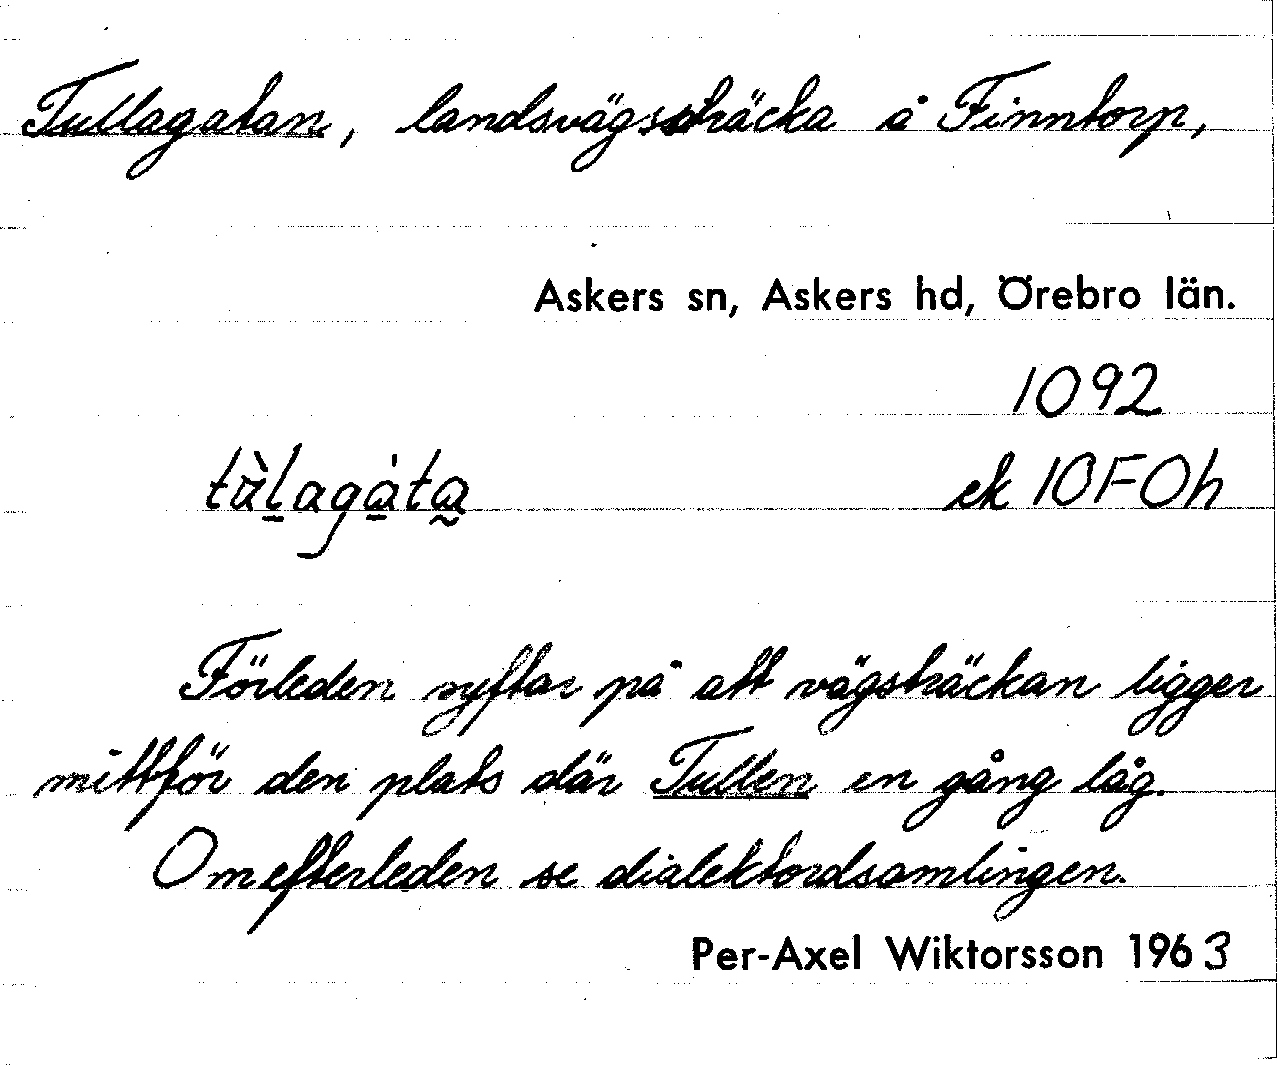 Tullagatan, landsvägssträcka å Finntorp,
Askers sn, Askers hd, Örebro län.
1092
tu̇̀lagàta ek 10F0h
Förleden syftar på att vägsträckan ligger
mittför den plats där Tullen en gång låg.
Om efterleden se dialektordsamlingen.
Per-Axel Wiktorsson 1963